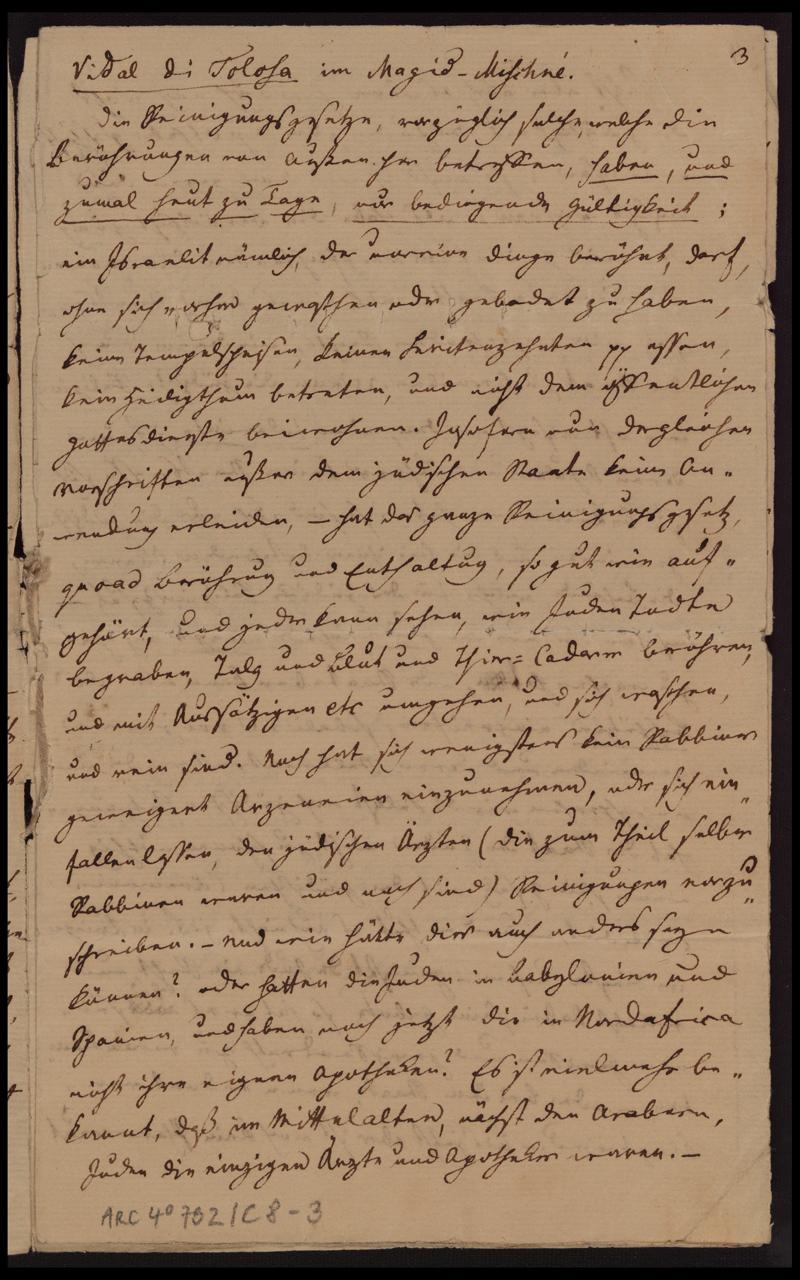 3
Vidal di Tolosa im Magid-Mischné.
Die Reinigungsgesetze, vorzüglich solche, welche die
Berührungen von außen her betreffen, haben, und
zumal heut zu Tage, nur bedingende Gültigkeit;
ein Israelit nämlich, der unreine Dinge berührt, darf,
ohne sich vorher gewaschen oder gebadet zu haben,
keine Tempelspeisen, keinen Levitenzehnten pp essen,
kein Heiligthum betreten, und nicht dem öffentlichen
Gottesdienste beiwohnen. Insofern nun dergleichen
Vorschriften außer dem jüdischen Staate keine An„
wendung erleiden, – hat das ganze Reinigungsgesetz,
quoad Berührung und Enthaltung, so gut wie auf„
gehört, und jeder kann sehen, wie Juden Todte
begraben, Talg und Blut und Thier=Cadaver berühren,
und mit Aussätzigen etc umgehen, und sich waschen,
und rein sind. Noch hat sich wenigstens kein Rabbiner
geweigert Arzeneien einzunehmen, oder sich ein„
fallen lassen, den jüdischen Ärzten (die zum Theil selber
Rabbinen waren und noch sind) Reinigungen vorzu„
schreiben. – Und wie hätte dies auch anders seyn
können? oder hatten die Juden in Babylonien und
Spanien, und haben noch jetzt die in Nordafrica
nicht ihre eignen Apotheken? Es ist vielmehr be„
kannt, daß im Mittelalter, nächst den Arabern,
Juden die einzigen Ärzte und Apotheker waren. –
ARC 4° 792/C8-3